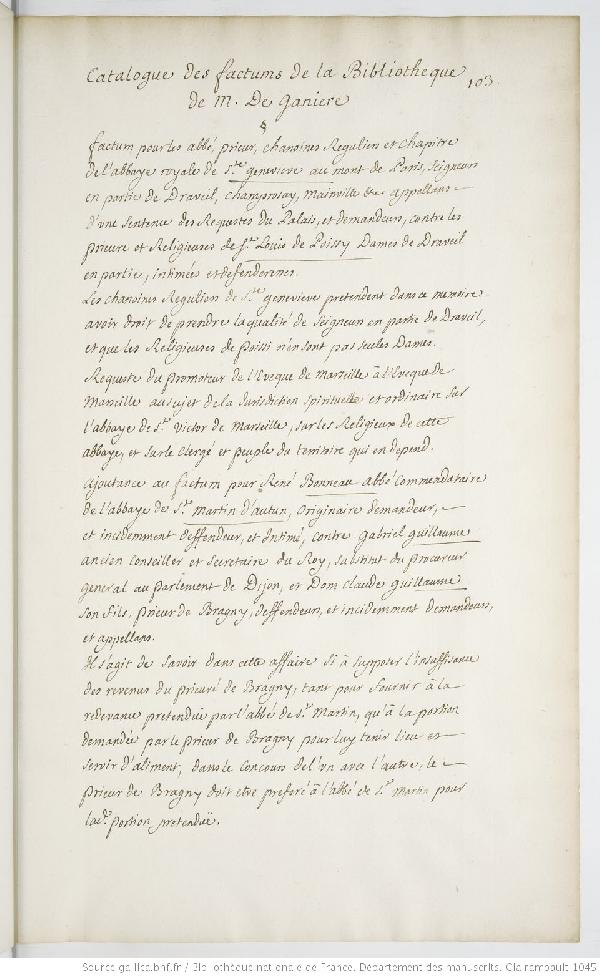 Catalogue des factums de la Bibliotheque
103
de M. De Ganiere
factum pour les abbé, prieur, chanoines Regulien et Chapitre
de l'abbaye royale de Ste genevieve au mont de Paris, Seigneurs
en partie de Draveil, Champrosay, Mainville &c. appellans
d'une Sentence des Requestes du Palais, et demandeurs, contre les
prieure et Religieuses de St. Louis de Poissy Dames de Draveil
en partie, intimées et defenderesses.
Les chanoines Regulien de Ste genevieve pretendent dans ce memoire
avoir droit de prendre la qualité de Seigneurs en partie de Draveil,
et que les Religieuses de poissi n'en sont pas seules Dames.
Requeste du promoteur de l'Eveque de Marseille à l'Eveque de
Marseille au sujet de la Jurisdiction spirituelle et ordinaire sur
l'abbaye de St. Victor de Marseille, sur les Religieux de cette
abbaye, et sur le Clergé et peuple du territoire qui en depend.
ajoutance au factum pour René Bonneau abbé Commendataire
de l'abbaye de St. Martin d'autun, originaire demandeur,
et incidemment deffendeur, et Intimé, contre gabriel guillaume
ancien Conseiller et Secretaire du Roy, substitut du procureur
general au parlement de Dijon, et Dom claude guillaume
son fils, prieur de Bragny, deffendeurs, et incidemment demandeurs,
et appellans.
Il s'agit de Savoir dans cette affaire si à supposer l'insuffisance
des revenus du prieuré de Bragny, tant pour fournir à la
redevance pretendüe par l'abbé de St. Martin, qu'à la portion
demandée par le prieur de Bragny pour luy tenir lieu et
servir d'aliment, dans le concours de l'un avec l'autre, le
prieur de Bragny doit etre preferé à l'abbé de St. Martin pour
lad. portion pretendüe.
Source gallica.bnf.fr / Bibliothèque nationale de France. Département des manuscrits. Clairambault 1045